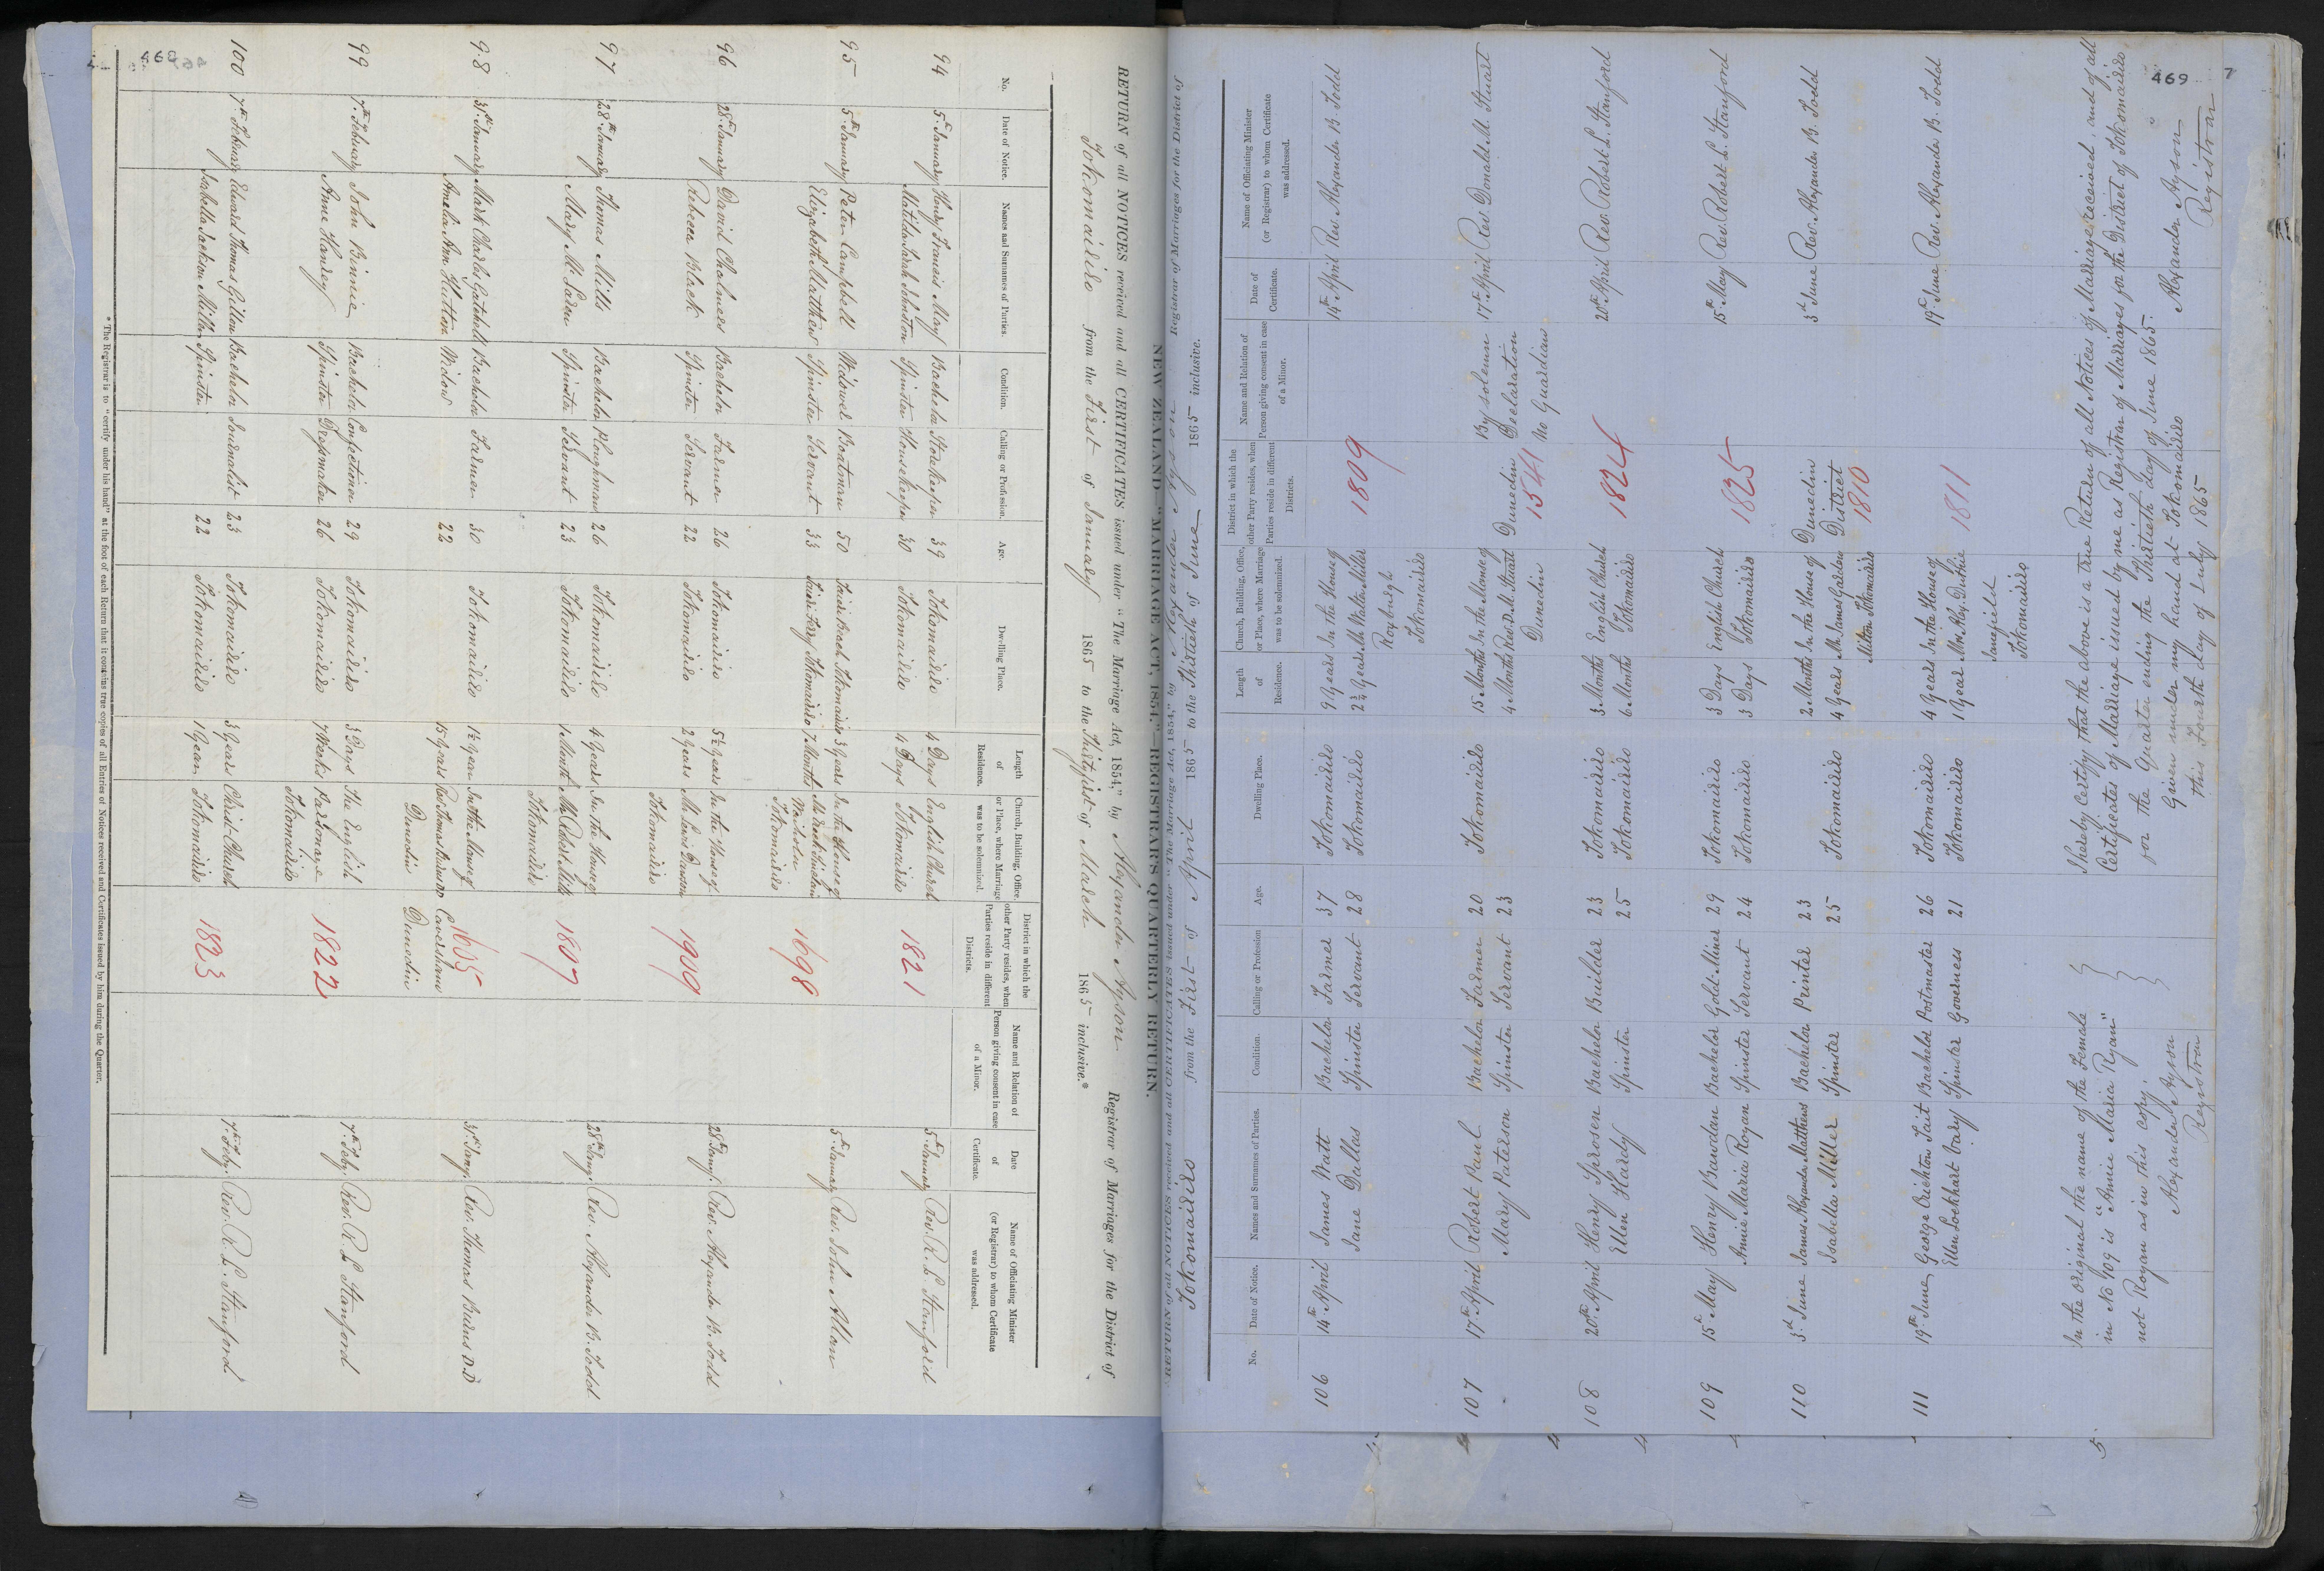 469
RETURN of all NOTICES received and all CERTIFICATES issued under "The Marriage Act, 1854," by Alexander Ayson Registrar of Marriages for the District of
Tokomairiro from the First of January 1865 to the Thirty first of March 1865 inclusive.*
No. Date of Notice. Names and Surnames of Parties. Condition. Calling or Profession. Age. Dwelling Place. Length of Residence. Church, Building, Office, or Place, where Marriage was to be solemnized. District in which the other Party resides, when Parties reside in different Districts. Name and Relation of Person giving consent in case of a Minor. Date of Certificate. Name of Officiating Minister (or Registrar) to whom Certificate was addressed.
94 5th January Henry Francis May Bachelor Storekeeper 39 Tokomairiro 4 Days English Church 1821 5th January Rev. R. L. Stanford
Matilda Sarah Johnston Spinster Housekeeper 30 Tokomairiro 4 Days Tokomairiro
95 5th January Peter Campbell Widower Boatman 50 Taieri Beach Tokomairiro 3 Years In the House of 1698 5th January Rev. John Allan
Elizabeth Matthew Spinster Servant 33 Taieri Ferry Tokomairiro 7 Months
Tokomairiro
96 28th January David Chalmers Bachelor Farmer 26 Tokomairiro 5½ Years In the House of 1909 28th Jany. Rev. Alexander B. Todd
Rebecca Black Spinster Servant 22 Tokomairiro 2 Years Mr Lewis Dawson
Tokomairiro
97 28th January Thomas Mills Bachelor Ploughman 26 Tokomairiro 4 Years In the House of 1807 28th Jany. Rev. Alexander B. Todd
Mary McLaren Spinster Servant 23 Tokomairiro 1 Month Mr Robert
Tokomairiro
98 31st January Mark Charles Gatehell Bachelor Farmer 30 Tokomairiro 1½ Year In the Manse of 1605 31st Jany. Rev. Thomas Burns D.D.
Amelia Ann Hutton Widow 22 15 Years Rev Thomas Burns DD Caversham
Dunedin Dunedin
99 7th February John Binnie Bachelor Confectioner 29 Tokomairiro 3 Days The English 1822 7th Feby. Rev. R. L. Stanford
Anne Hanley Spinster Dressmaker 26 Tokomairiro 7 Weeks Parsonage
Tokomairiro
100 7th February Edward Thomas Gillon Bachelor Journalist 23 Tokomairiro 3 Years Christ-Church 1823 7th Feby. Rev. R. L. Stanford
Isabella Jackson Miller Spinster 22 Tokomairiro 1 Year Tokomairiro
* The Registrar is to "certify under his hand" at the foot of each Return that it contains true copies of all Entries of Notices received and Certificates issued by him during the Quarter.
469
7
NEW ZEALAND "MARRIAGE ACT, 1854."—REGISTRAR'S QUARTERLY RETURN.
RETURN of all NOTICES received and all CERTIFICATES issued under "The Marriage Act, 1854," by Alexander Ayson Registrar of Marriages for the District of
Tokomairiro from the First of April 1865 to the Thirtieth of June 1865 inclusive.
No. Date of Notice. Names and Surnames of Parties. Condition. Calling or Profession Age. Dwelling Place. Length of Residence. Church, Building, Office, or Place, where Marriage was to be solemnized. District in which the other Party resides, when Parties reside in different Districts. Name and Relation of Person giving consent in case of a Minor. Date of Certificate. Name of Officiating Minister (or Registrar) to whom Certificate was addressed.
106 14th April James Watt Bachelor Farmer 37 Tokomairiro 9 Years In the House of 1809 14th April Rev. Alexander B. Todd
Jane Dallas Spinster Servant 28 Tokomairiro 2½ Years Mr Walter Miller
Roxburgh
Tokomairiro
107 17th April Robert Paul Bachelor Farmer 20 Tokomairiro 15 Months In the Manse of By solemn 17th April Rev. Donald M. Stuart
Mary Paterson Spinster Servant 23 4 Months Rev. D. M. Stuart Dunedin Declaration
Dunedin 1541 No Guardian
108 20th April Henry Sprosen Bachelor Builder 23 Tokomairiro 3 Months English Church 1824 20th April Rev. Robert L. Stanford
Ellen Hardy Spinster 25 Tokomairiro 6 Months Tokomairiro
109 15th May Henry Bardan Bachelor Gold-Miner 29 Tokomairiro 3 Days English Church 1825 15th May Rev. Robert L. Stanford
Annie Maria Royan Spinster Servant 24 Tokomairiro 3 Days Tokomairiro
110 3d June James Alexander Matthews Bachelor Printer 23 2 Months In the House of Dunedin 3d June Rev. Alexander B. Todd
Isabella Miller Spinster 25 Tokomairiro 4 Years Mr James Gardner District
Milton Tokomairiro 1810
111 19th June George Crichton Tait Bachelor Postmaster 26 Tokomairiro 4 Years In the House of 1811 19th June Rev. Alexander B. Todd
Ellen Lockhart Vary Spinster Governess 21 Tokomairiro 1 Year Mrs Alex. Duthie
Janefield
Tokomairiro
In the original the name of the Female
in No 109 is "Annie Maria Ryan"
not Royan as in this copy.
Alexander Ayson
Registrar
I hereby Certify that the above is a true Return of all Notices of Marriage received, and of all
Certificates of Marriage issued by me as Registrar of Marriages for the District of Tokomairiro
for the Quarter ending the Thirtieth day of June 1865.
Given under my hand at Tokomairiro
this Fourth day of July 1865
Alexander Ayson
Registrar